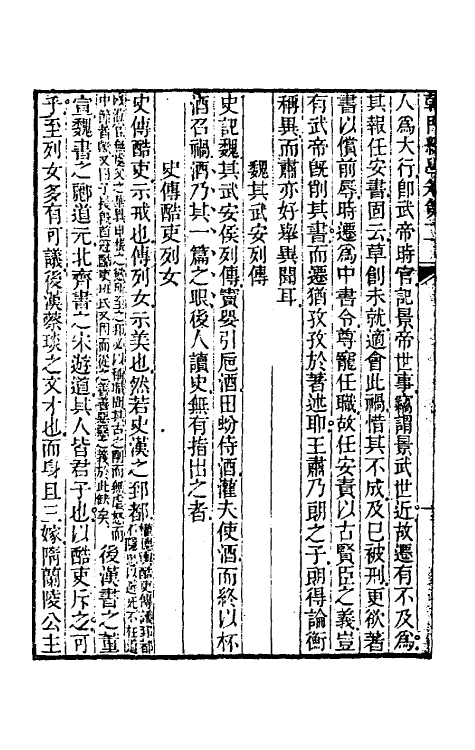 人爲大行卽武帝時官記景帝世事竊謂景武世近故遷有不及爲
其報任安書固云草創未就適會此禍惜其不成及已被刑更欲著
書以償前辱時遷爲中書令尊寵任職故任安責以古賢臣之義豈
有武帝旣削其書而遷猶孜孜於著述耶王肅乃朗之子朗得論衡
稱異而肅亦好舉異聞耳
魏其武安列傳
史記魏其武安侯列傳竇嬰引卮酒田蚡侍酒灌夫使酒而終以杯
酒召禍酒乃其一篇之眼後人讀史無有指出之者
史傳酷吏列女
史傳酷吏示戒也傳列女示美也然若史漢之郅都後漢書之董
宣魏書之酈道元北齊書之宋遊道其人皆君子也以酷吏斥之可
乎至列女多有可議後漢蔡琰之文才也而身且三嫁隋蘭陵公主